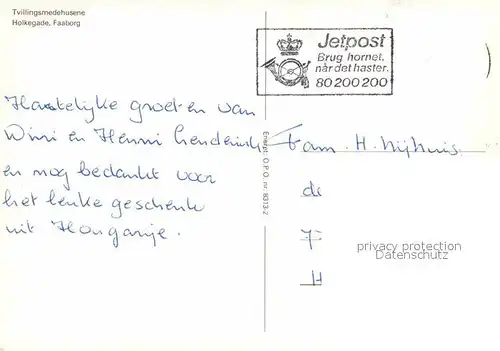 Tvillingsmedehusene
Holkegade, Faaborg
Jetpost
Brug hornet,
når det haster.
80 200 200
Hartelijke groeten van
Wini en Henni
en nog bedankt voor
het leuke geschenk
uit Hongarije.
Fam. H. Nijhuis
Eneret: O.P.O. nr. 8313-2
privacy protection
Datenschutz